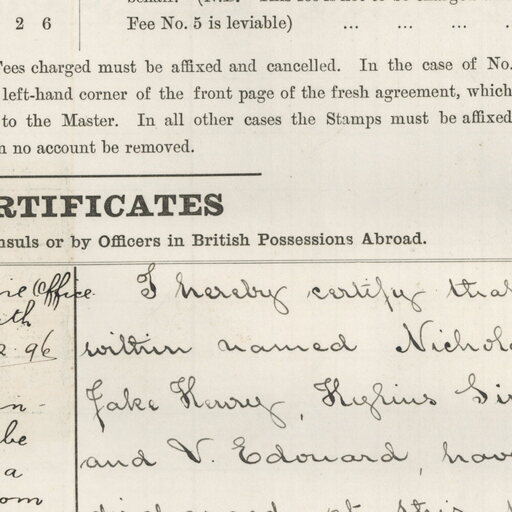 2 6 Fee No. 5 is leviable) ... ... ... ..
Fees charged must be affixed and cancelled. In the case of No.
left-hand corner of the front page of the fresh agreement, which
to the Master. In all other cases the Stamps must be affixed
n no account be removed.
RTIFICATES
nsuls or by Officers in British Possessions Abroad.
Office
96
n-
be
a
om
I hereby certify that
within named Nichol
Jake Henry,
and V. Edouard, have
at this